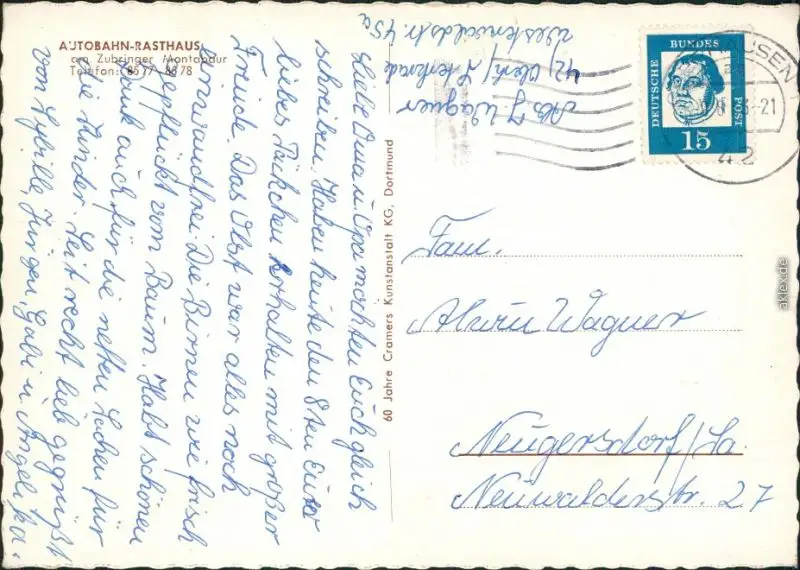 AUTOBAHN-RASTHAUS
am Zubringer Montabaur
Telefon: 8577 8578
Abs. J Wagner
42 Oberh/Sterkrade
Westerwaldstr. 45a
Liebe Oma u Opa möchten Euch gleich
schreiben. Haben heute den 8ten Euer
liebes Päckchen erhalten mit großer
Freude. Das Obst war alles noch
einwandfrei Die Birnen wie frisch
gepflückt vom Baum. Habt schönen
Dank auch für die netten Sachen für
die Kinder. Seit recht lieb gegrüßt
von Sybille, Jürgen, Gabi u Angelika.
60 Jahre Cramers Kunstanstalt KG, Dortmund
DEUTSCHE BUNDES POST
15
HAUSEN
-21
42
Fam.
Alwin Wagner
Neugersdorf/Sa.
Neuwalderstr. 27
aklex.de